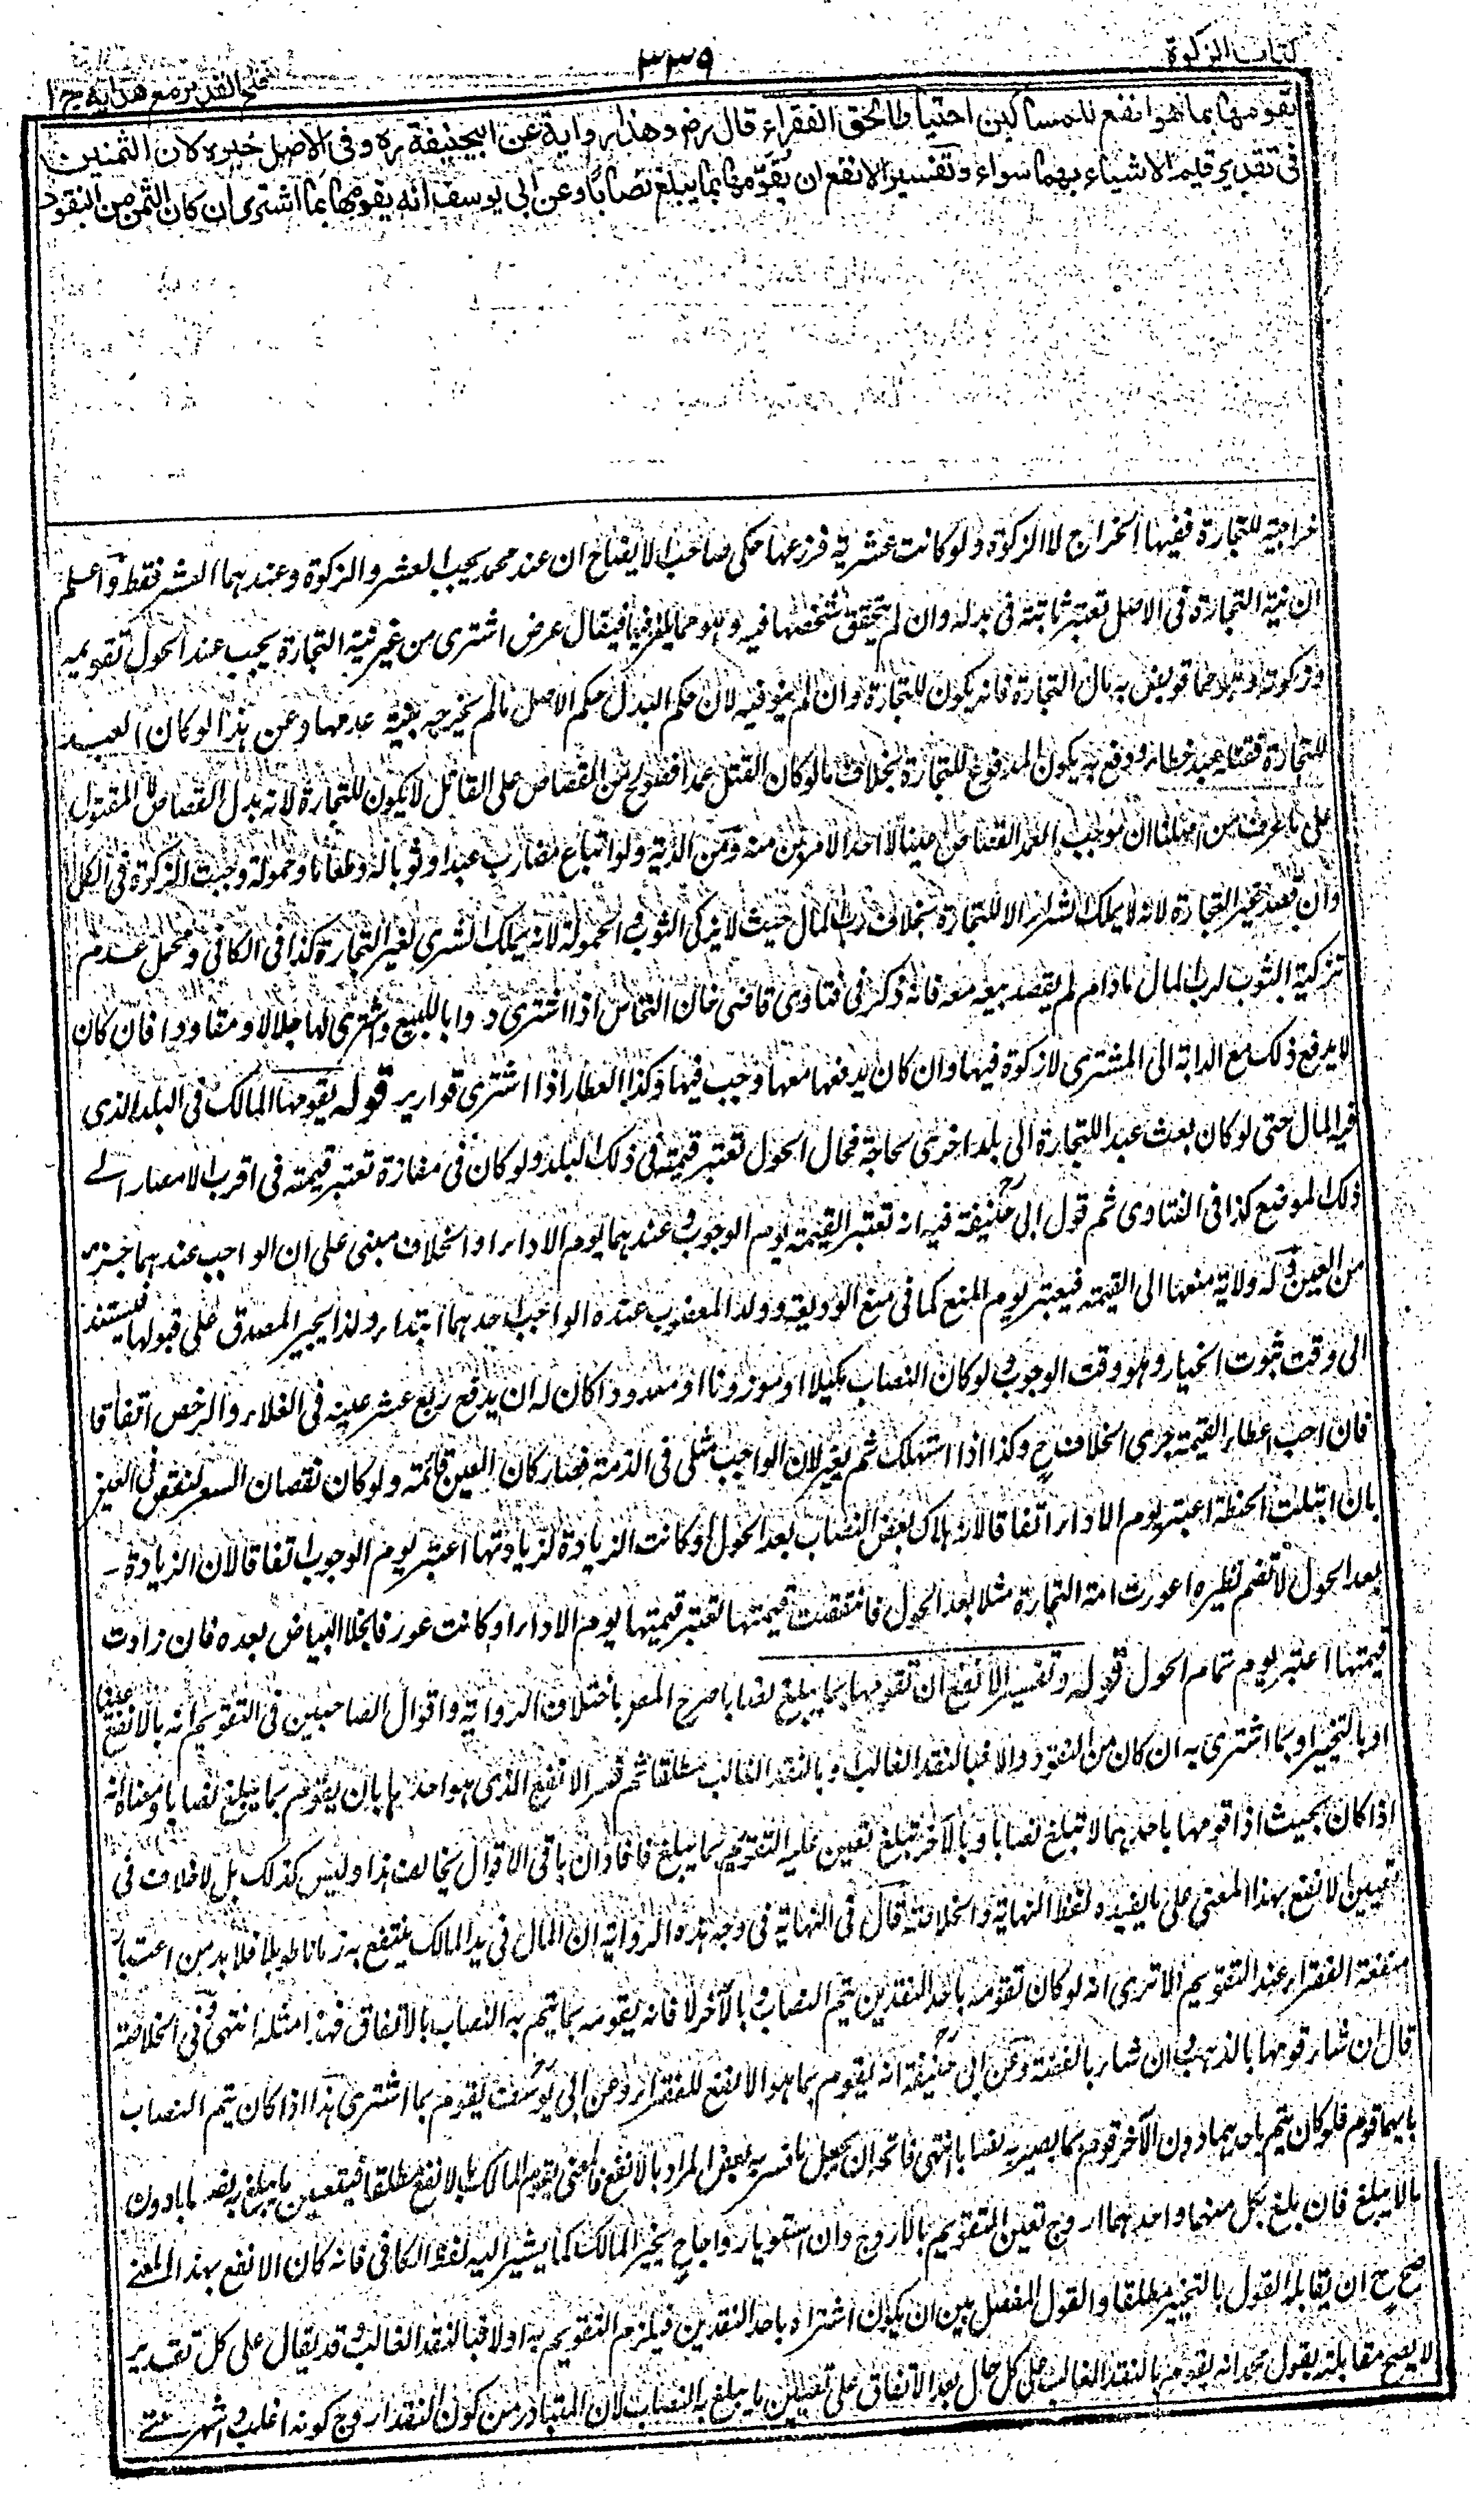 كتاب الزكوة
٣٣٩
فتح القدير مع هداية ج ١
يقومها بما هو انفع للمساكين احتياطا لحق الفقراء قال رض وهذا رواية عن ابيحنيفة ره وفى الاصل خيره لان الثمنين
فى تقدير قيم الاشياء بهما سواء وتفسير الانفع ان يقومها بما يبلغ نصابا وعن ابى يوسف انه يقومها بما اشترى ان كان الثمن من النقود
خراجية للتجارة ففيها الخراج لا الزكوة ولو كانت عشرية فزرعها حكى صاحب الايضاح ان عند محمد يجب العشر والزكوة وعندهما العشر فقط واعلم
ان نية التجارة فى الاصل تعتبر ثابتة فى بدله وان لم يتحقق شخصها فيه وهو مما يلغز فيقال عرض اشترى من غير نية التجارة يجب عند الحول تقويمه
وزكوته وهو ما قويض به مال التجارة فانه يكون للتجارة وان لم ينو فيه لان حكم البدل حكم الاصل مالم يخرجه بنية عدمها وعن هذا لو كان العبد
للتجارة فقتله عبد خطاء ودفع به يكون المدفوع للتجارة بخلاف مالو كان القتل عمدا فصولح من القصاص على القاتل لا يكون للتجارة لانه بدل القصاص لا المقتول
على ما عرف من اصلنا ان موجب العمد القصاص عينا لا احد الامرين منه ومن الدية ولو ابتاع مضارب عبدا وثوبا له وطعاما وحمولة وجبت الزكوة فى الكل
وان قصد غير التجارة لانه لا يملك الشراء الا للتجارة بخلاف رب المال حيث لا يزكى الثوب والحمولة لانه يملك الشرى لغير التجارة كذا فى الكافى ومحمل عدم
تزكية الثوب لرب المال مادام لم يقصد بيعه معه فانه ذكر فى فتاوى قاضى خان النخاس اذا اشترى دوابا للبيع واشترى لها جلالا ومقاودا فان كان
لا يدفع ذلك مع الدابة الى المشترى لا زكوة فيها وان كان يدفعها معها وجب فيها وكذا العطار اذا اشترى قوارير قوله يقومها المالك فى البلد الذى
فيه المال حتى لو كان بعث عبدا للتجارة الى بلد اخرى لحاجة فحال الحول تعتبر قيمته فى ذلك البلد ولو كان فى مفازة تعتبر قيمته فى اقرب الامصار الى
ذلك الموضع كذا فى الفتاوى ثم قول ابى حنيفة فيه انه تعتبر القيمة يوم الوجوب وعندهما يوم الاداء والخلاف مبنى على ان الواجب عندهما جزء
من العين وله ولاية منعها الى القيمة فيعتبر يوم المنع كما فى منع الوديعة وولد المغصوب وعنده الواجب احدهما ابتداء ولذا يجبر المصدق على قبولها فيستند
الى وقت ثبوت الخيار وهو وقت الوجوب ولو كان النصاب مكيلا او موزونا او معدودا كان له ان يدفع ربع عشر عينه فى الغلاء والرخص اتفاقا
فان احب اعطاء القيمة جرى الخلاف ح وكذا اذا استهلك ثم تغير لان الواجب مثلى فى الذمة فصار كان العين قائمة ولو كان نقصان السعر لنقص فى العين
بان ابتلت الحنطة اعتبر يوم الاداء اتفاقا لانه هلاك بعض النصاب بعد الحول او كانت الزيادة لزيادتها اعتبر يوم الوجوب اتفاقا لان الزيادة
بعد الحول لا تضم نظيره اعورت امة التجارة مثلا بعد الحول فانتقصت قيمتها تعتبر قيمتها يوم الاداء او كانت عوراء فانجلا البياض بعده فان زادت
قيمتها اعتبر يوم تمام الحول قوله وتفسير الانفع ان تقومها بما يبلغ نصابا صرح المصر باختلاف الرواية واقوال الصاحبين فى التقويم انه بالانفع عينا
او بالتخيير او بما اشترى به ان كان من النقود والا فبالنقد الغالب او بالنقد الغالب مطلقا ثم فسر الانفع الذى هو احدها بان يقوم بما يبلغ نصابا ومعناه انه
اذا كان بحيث اذا قومها باحدهما لا تبلغ نصابا وبالآخر تبلغ تعين عليه التقويم بما يبلغ فافاد ان باقى الاقوال يخالف هذا وليس كذلك بل لا خلاف فى
تعيين الانفع بهذا المعنى على ما يفيده لفظ النهاية والخلاصة قال فى النهاية فى وجه هذه الرواية ان المال فى يد المالك ينتفع به زمانا طويلا فلا بد من اعتبار
منفعة الفقراء عند التقويم الا ترى انه لو كان تقومه باحد النقدين يتم النصاب وبالآخر لا فانه يقومه بما يتم به النصاب بالاتفاق فهذا مثله انتهى وفى الخلاصة
قال ان شاء قومها بالذهب وان شاء بالفضة وعن ابى حنيفة انه يقوم بما هو الانفع للفقراء وعن ابى يوسف يقوم بما اشترى هذا اذا كان يتم النصاب
بايهما قوم فلو كان يتم باحدهما دون الآخر قوم بما يصير به نصابا انتهى فاتجه ان يجعل ما فسر به بعض المراد بالانفع فالمعنى يقوم المالك بالانفع مطلقا فيتعين ما يبلغ به نصابا دون
مالا يبلغ فان بلغ بكل منهما واحدهما اروج تعين التقويم بالاروج وان استويا رواجا ح يخير المالك كما يشير اليه لفظ الكافى فانه كان الانفع بهذا المعنى
صح ح ان يقابله القول بالتخيير مطلقا والقول المفصل بين ان يكون اشتراه باحد النقدين فيلزم التقويم به اولا فبالنقد الغالب وقد يقال على كل تقدير
لا يصح مقابلته بقول محمد انه يقوم بالنقد الغالب على كل حال بعد الاتفاق على تعيين ما يبلغ به النصاب لان المتبادر من كون النقد اروج كونه اغلب واشهر حتى